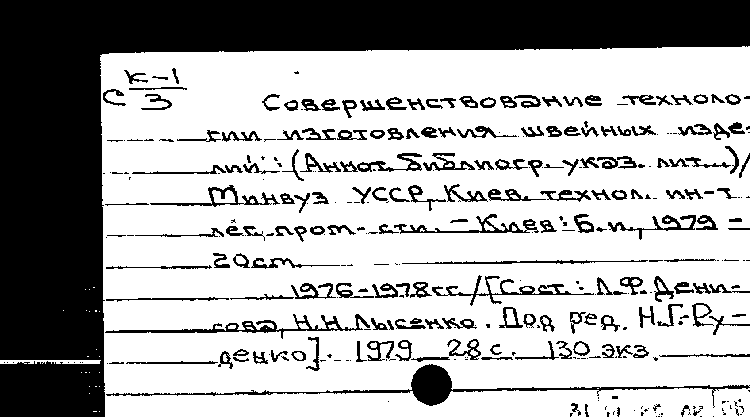 К-1
С 3
Совершенствование техноло-
гии изготовления швейных изде-
лий: (Аннот. библиогр. указ. лит...)/
Минвуз УССР, Киев. технол. ин-т
лег. пром-сти. – Киев: Б.и., 1979 –
20см.
1976-1978гг./[Сост.: Л.Ф. Дени-
сова, Н.Н. Лысенко. Под ред. Н.Г. Ру-
денко]. 1979 28 с. 130 экз.